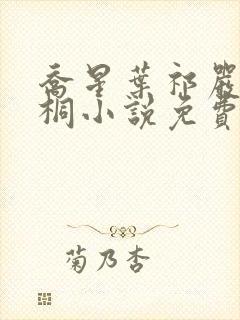 喬星葉祁嚴
桐小說免費
菊乃杏